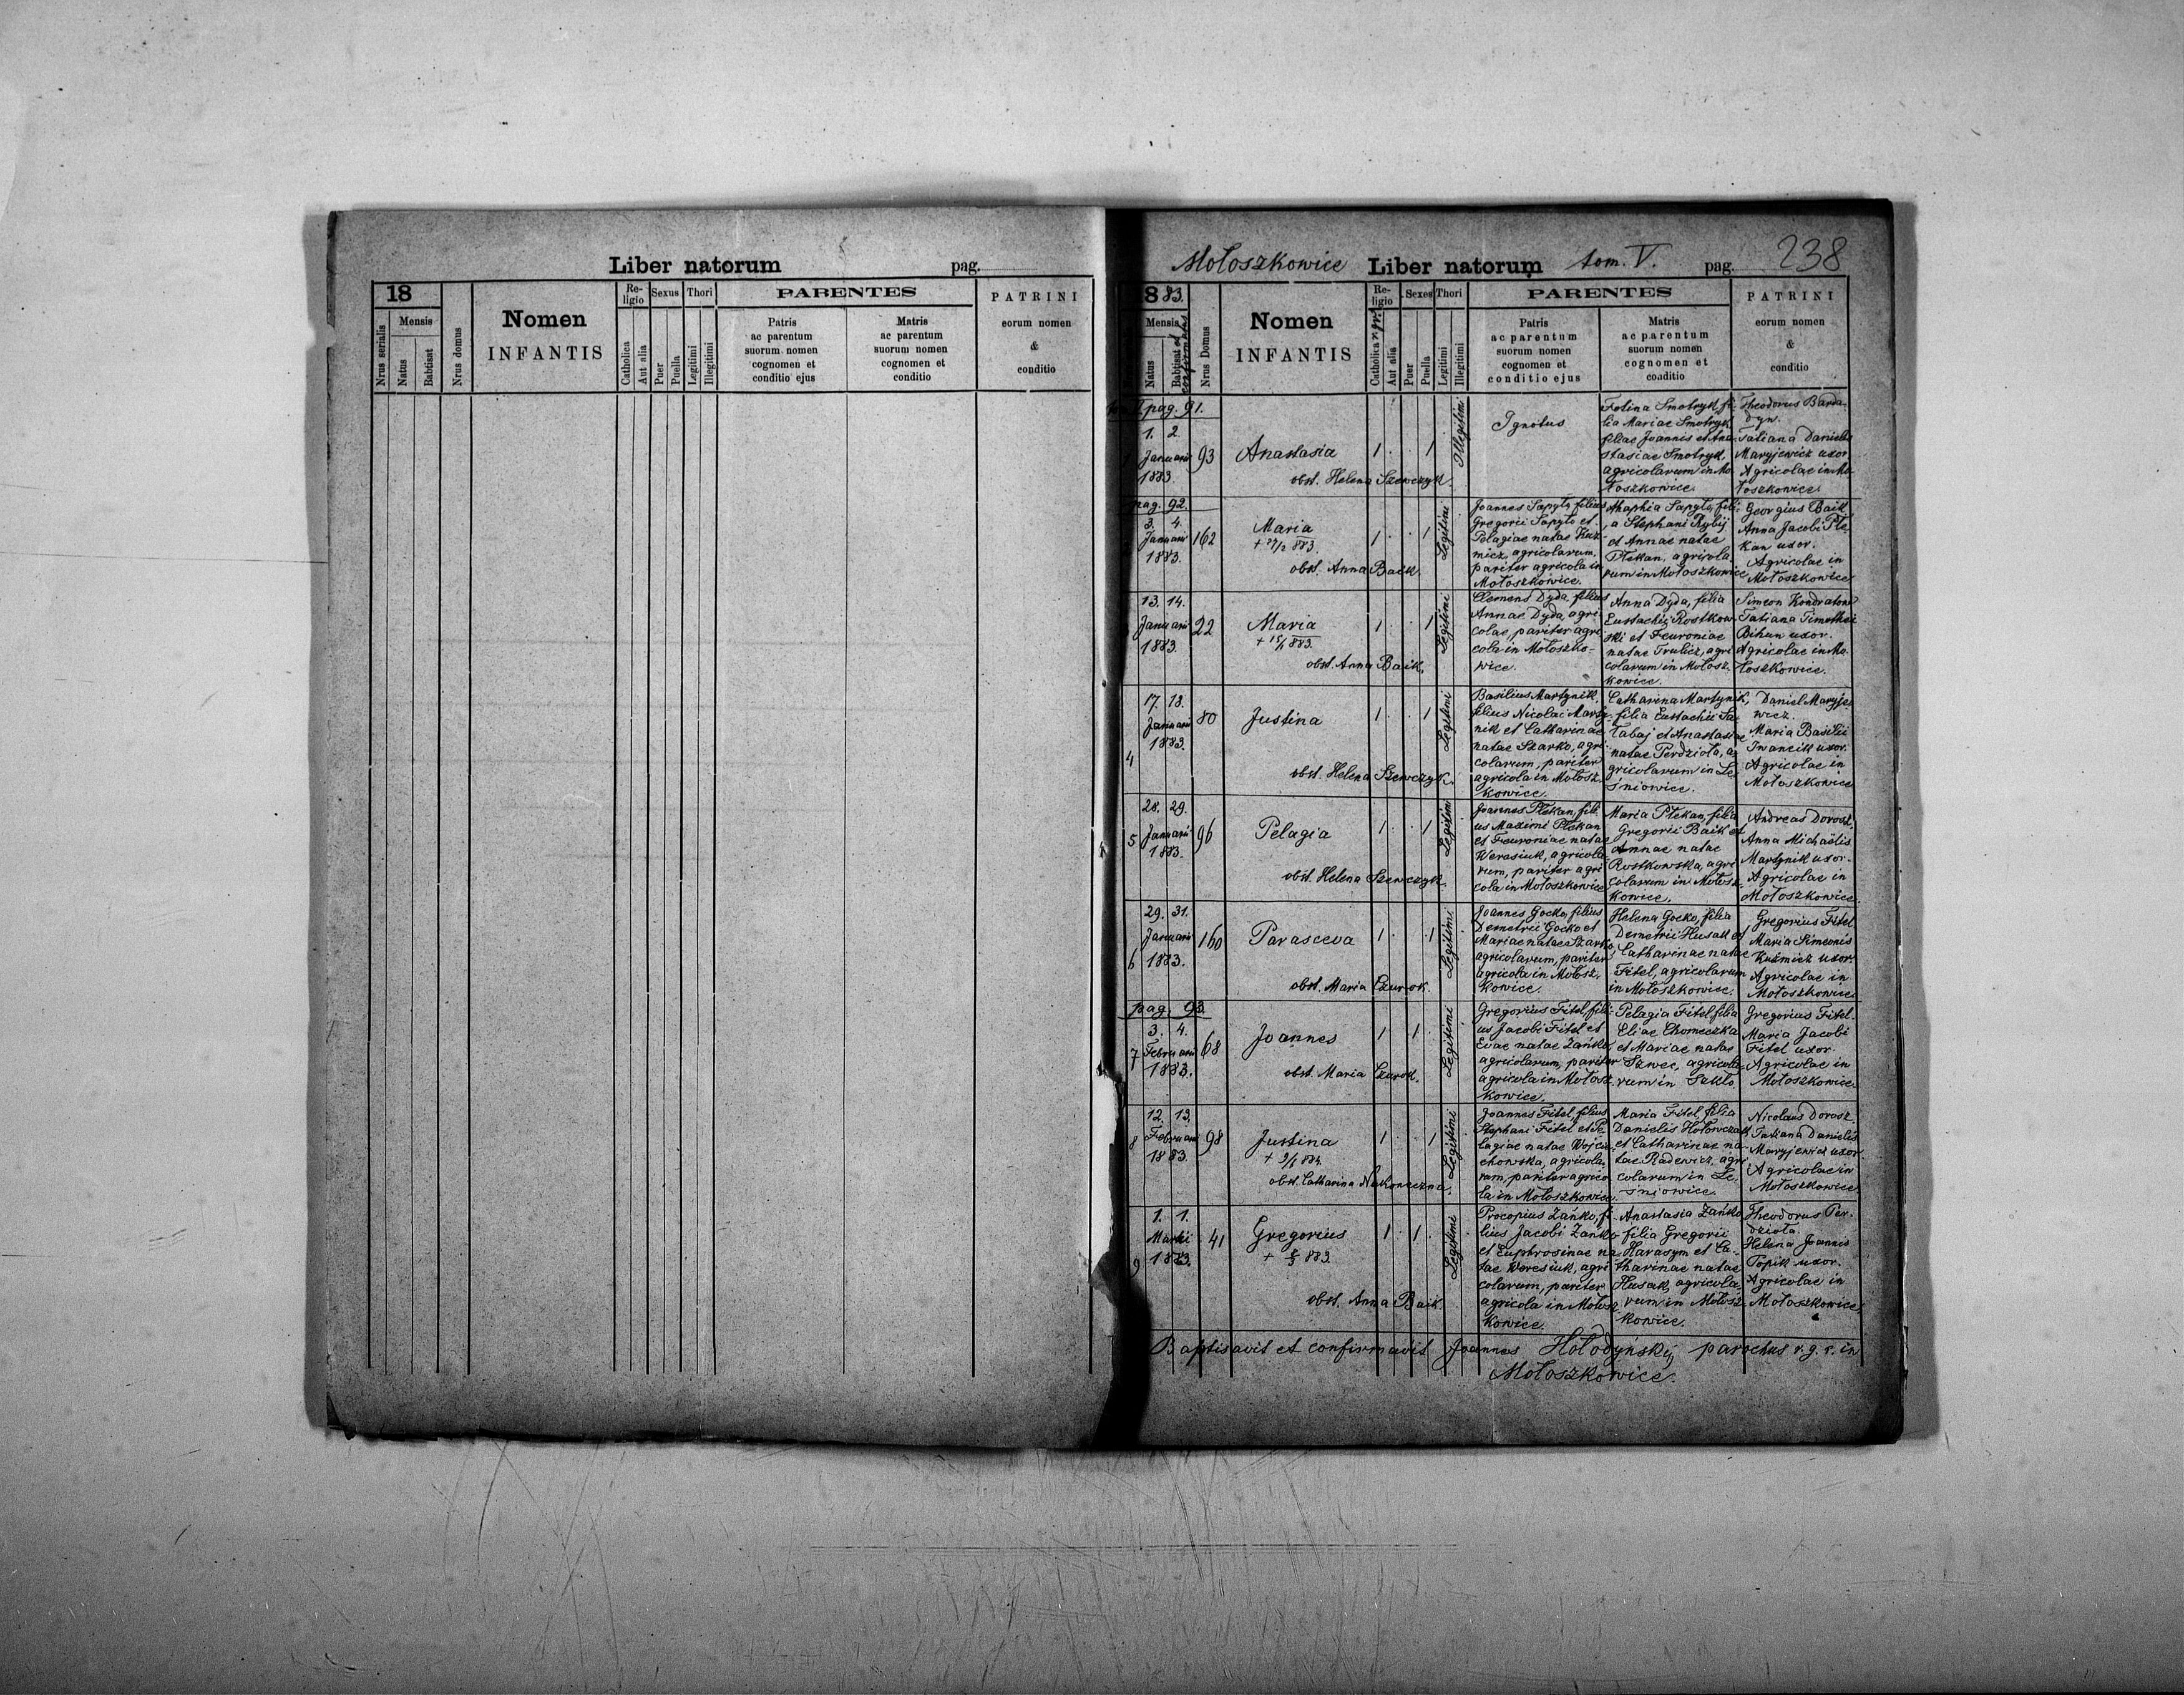 Liber natorum pag.
18
Nrus serialis
Mensis
Natus
Babtisat
Nrus domus
Nomen
INFANTIS
Re-
ligio
Catholica
Aut alia
Sexus
Puer
Puella
Thori
Legitimi
Illegitimi
PARENTES
Patris
ac parentum
suorum nomen
cognomen et
conditio ejus
Matris
ac parentum
suorum nomen
cognomen et
conditio
PATRINI
eorum nomen
&
conditio
Mołoszkowice Liber natorum tom. V. pag. 238
1883.
Mensis
Natus
Babtisat et
confirmatus
Nrus Domus
Nomen
INFANTIS
Re-
ligio
Catholica r. gr.
Aut alia
Sexes
Puer
Puella
Thori
Legitimi
Illegitimi
PARENTES
Patris
ac parentum
suorum nomen
cognomen et
conditio ejus
Matris
ac parentum
suorum nomen
cognomen et
conditio
PATRINI
eorum nomen
&
conditio
pag. 91.
1. 2.
Januarii
1883.
93
Anastasia
obst. Helena Szewczyk.
1 . . 1
Illegitimi
Ignotus
Fotina Smotryk, fi-
lia Mariae Smotryk
filiae Joannis et Ana-
stasiae Smotryk,
agricolarum in Mo-
łoszkowice.
Theodorus Barda-
dyn.
Tatiana Danielis
Maryjewicz uxor.
Agricolae in Mo-
łoszkowice.
pag. 92.
3. 4.
Januarii
1883.
162
Maria
+ 27/2 883.
obst. Anna Baik.
1 . . 1
Legitimi
Joannes Sapyło, filius
Gregorii Sapyło et
Pelagiae natae Kuź-
micz, agricolarum,
pariter agricola in
Mołoszkowice.
Ahaphia Sapyło, fili-
a Stephani Rybij
et Annae natae
Ptekan, agricola-
rum in Mołoszkowice
Georgius Baik
Anna Jacobi Pte-
kan uxor.
Agricolae in
Mołoszkowice
13. 14.
Januarii
1883.
22
Maria
+ 15/1 883.
obst. Anna Baik.
1 . . 1
Legitimi
Clemens Dyda, filius
Annae Dyda, agri-
colae, pariter agri-
cola in Mołoszko-
wice.
Anna Dyda, filia
Eustachii Rostkow-
ski et Feuroniae
natae Trulicz, agri-
colarum in Mołosz-
kowice.
Simeon
Tatiana Timothei
Bihun uxor.
Agricolae in Mo-
łoszkowice.
4
17. 18.
Januarii
1883.
80
Justina
obst. Helena Szewczyk.
1 . . 1
Legitimi
Basilius Martynik,
filius Nicolai Marty-
nik et Catharinae
natae Szarko, agri-
colarum, pariter
agricola in Mołosz-
kowice.
Catharina Martynik,
filia Eustachii Sa-
łabaj et Anastasiae
natae Perdzioła, a-
gricolarum in Le-
śniowice.
Daniel Maryje-
wicz.
Maria Basilii
Iwancik uxor.
Agricolae in
Mołoszkowice
5
28. 29.
Januarii
1883.
96
Pelagia
obst. Helena Szewczyk.
1 . . 1
Legitimi
Joannes Ptekan, fili-
us Maximi Ptekan
et Feuroniae natae
Werasiuk, agricola-
rum, pariter agri-
cola in Mołoszkowice
Maria Ptekan, filia
Gregorii Baik et
Annae natae
Rostkowska, agri-
colarum in Mołosz-
kowice.
Andreas Dorosz,
Anna Michaëlis
Martynik uxor.
Agricolae in
Mołoszkowice
6
29. 31.
Januarii
1883.
160
Parasceva
obst. Maria Czurok.
1 . . 1
Legitimi
Joannes Gocko, filius
Demetrii Gocko et
Mariae natae Szarko,
agricolarum, pariter
agricola in Mołosz-
kowice.
Helena Gocko, filia
Demetrii Husak et
Catharinae natae
Fitel, agricolarum
in Mołoszkowice.
Gregorius Fitel
Maria Simeonis
Kuźmicz uxor.
Agricolae in
Mołoszkowice
pag. 93.
7
3. 4.
Februarii
1883.
68
Joannes
obst. Maria Czurok.
1 . 1 .
Legitimi
Gregorius Fitel, fili-
us Jacobi Fitel et
Evae natae Zańko,
agricolarum, pariter
agricola in Mołosz-
kowice.
Pelagia Fitel filia
Eliae Chomeczka
et Mariae natae
Szwec, agricola-
rum in Szkło
Gregorius Fitel.
Maria Jacobi
Fitel uxor.
Agricolae in
Mołoszkowice.
8
12. 13.
Februarii
1883.
98
Justina
obst. Catharina Nakoneczna.
1 . . 1
Legitimi
Joannes Fitel, filius
Stephani Fitel et Pe-
lagiae natae Wojcie-
chowska, agricola-
rum, pariter agrico-
la in Mołoszkowice.
Maria Fitel, filia
Danielis Hołowczak
et Catharinae na-
tae Radewicz, agri-
colarum in Le-
śniowice.
Nicolaus Dorosz.
Tatiana Danielis
Maryjewicz uxor.
Agricolae in
Mołoszkowice
9
1. 1.
Martii
1883.
41
Gregorius
obst. Anna Baik.
1 . 1 .
Legitimi
Procopius Zańko, fi-
lius Jacobi Zańko
et Euphrosinae na-
tae Weresiuk, agri-
colarum, pariter
agricola in Mołosz-
kowice.
Anastasia Zańko
filia Gregorii
Harasym et Ca-
tharinae natae
Husak, agricola-
rum in Mołosz-
kowice.
Theodorus Per-
dzioła
Helena Joannis
Topik uxor.
Agricolae in
Mołoszkowice.
Baptisavit et confirmavit Joannes Hołodyńskij parochus r. g. r. in
Mołoszkowice.